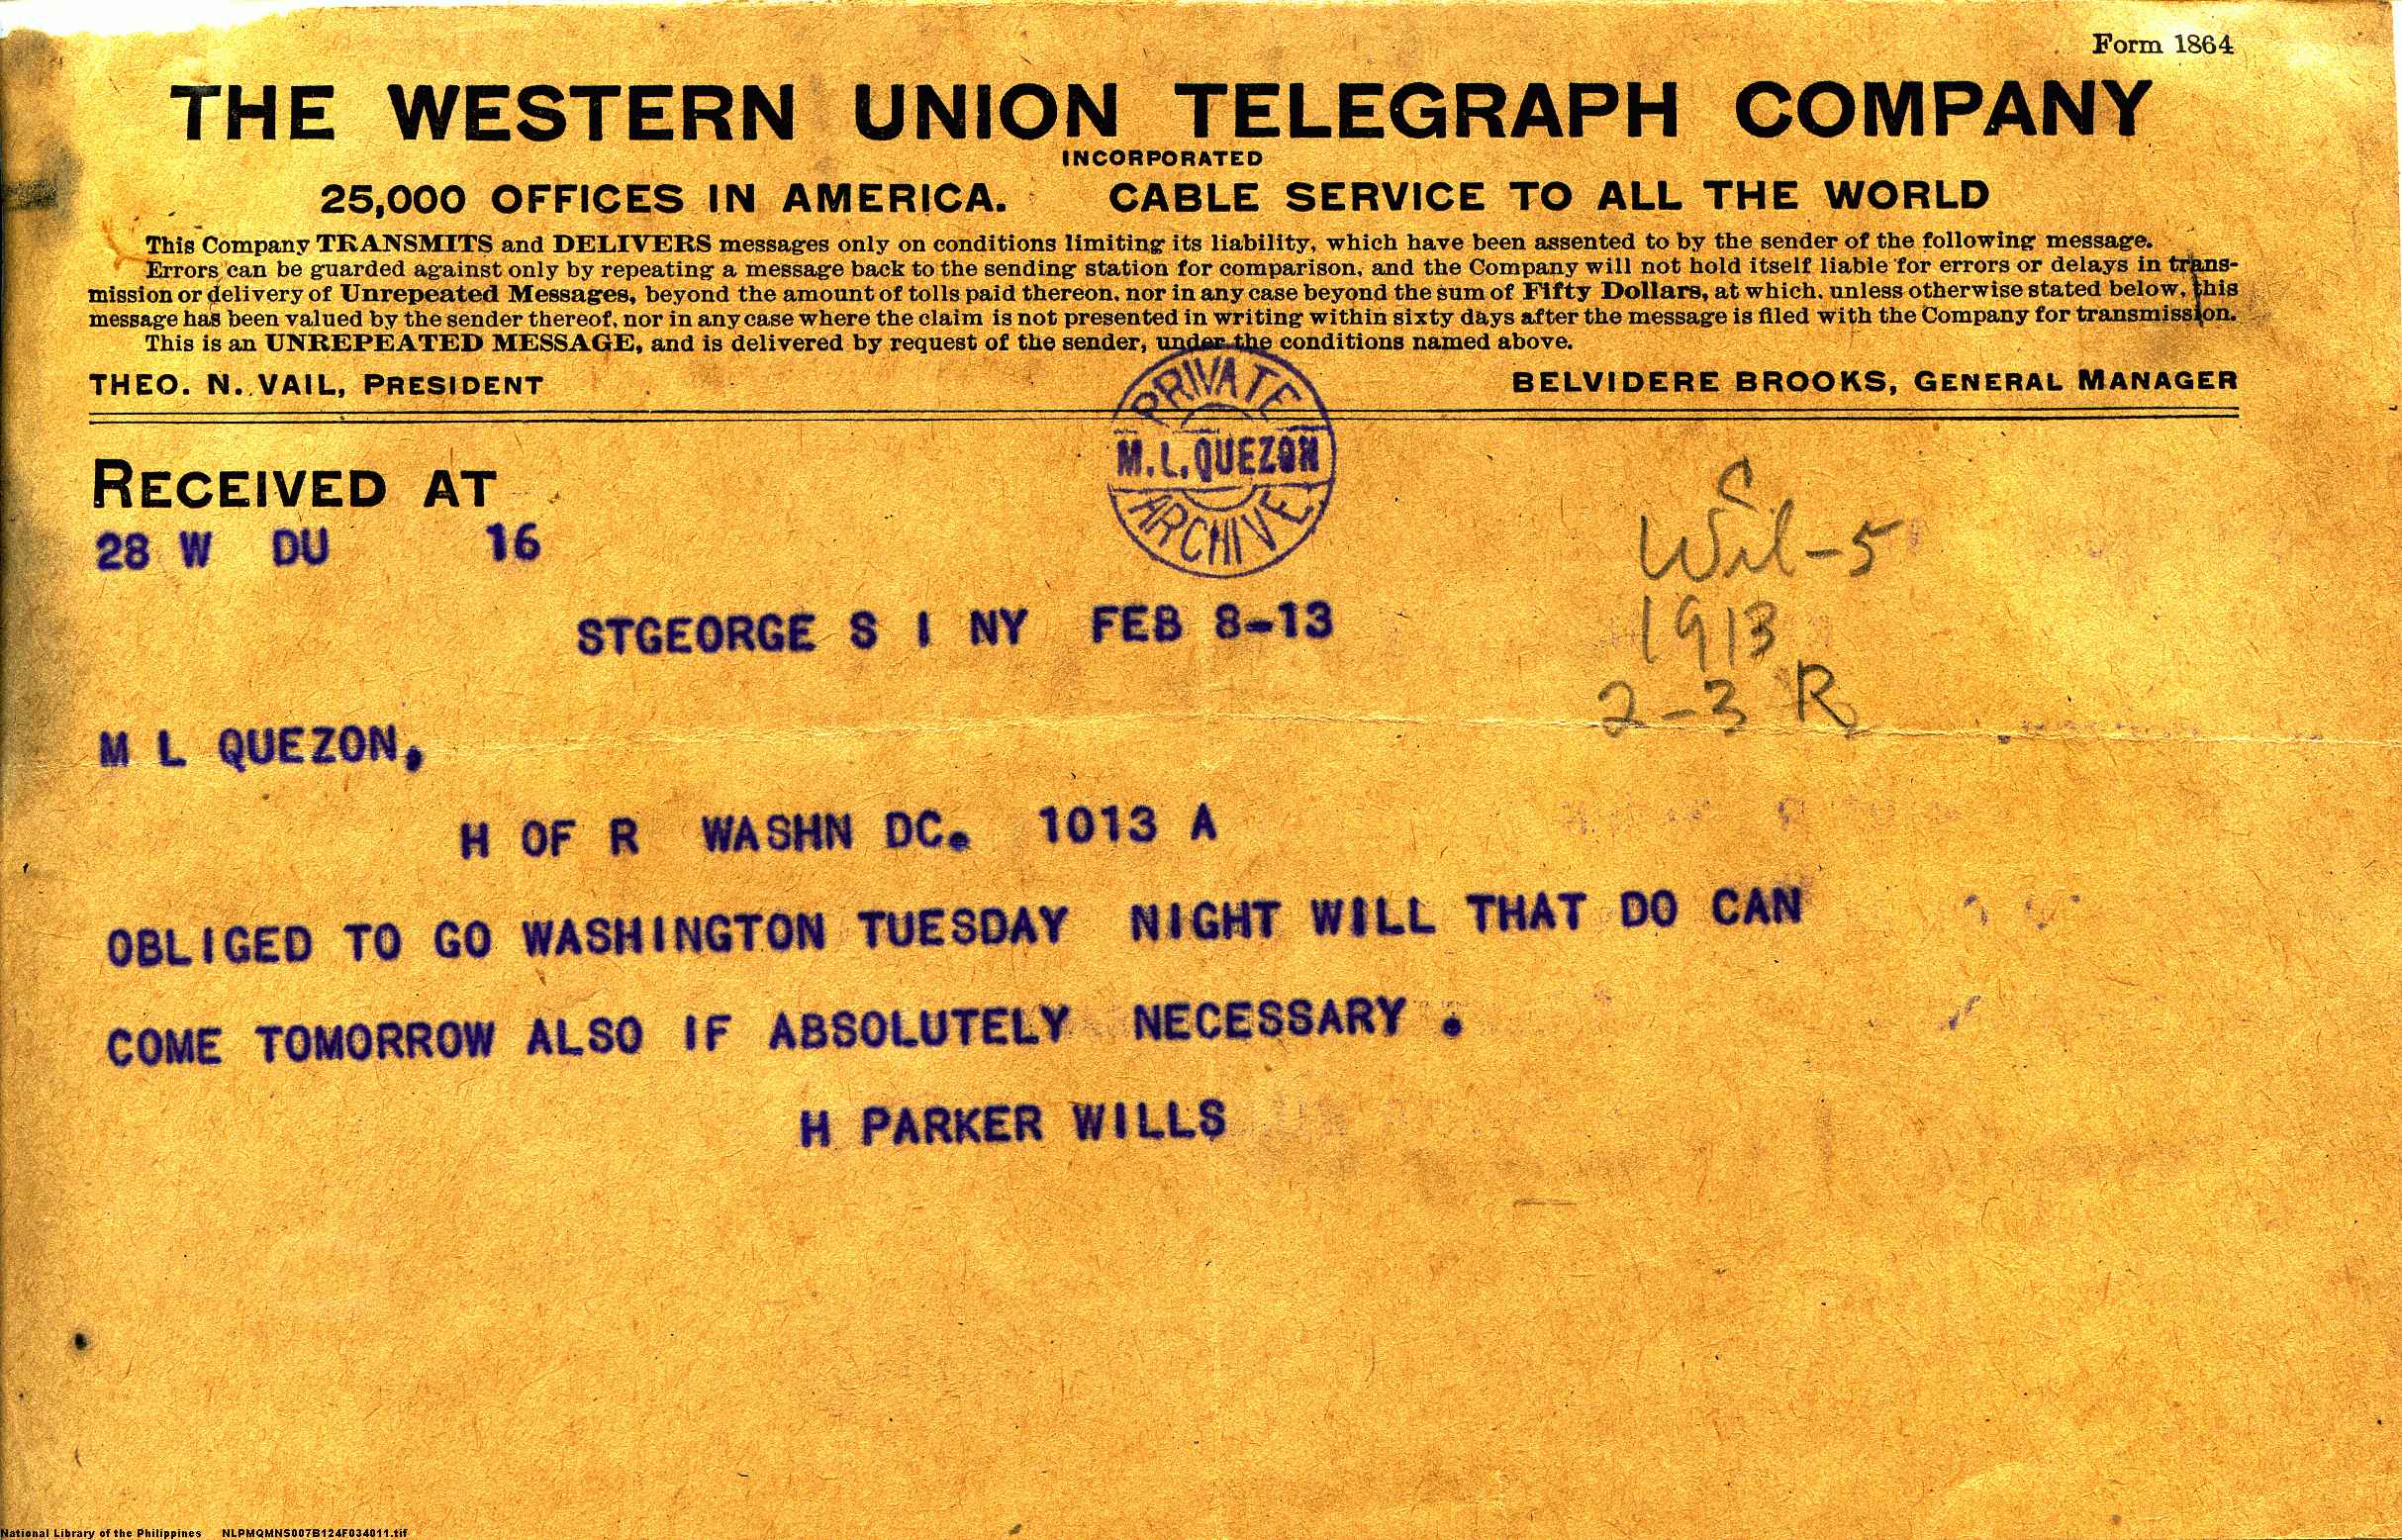 Form 1864
THE WESTERN UNION TELEGRAPH COMPANY
INCORPORATED
25,000 OFFICES IN AMERICA. CABLE SERVICE TO ALL THE WORLD
This Company TRANSMITS and DELIVERS messages only on conditions limiting its liability, which have been assented to by the sender of the following message.
Errors can be guarded against only by repeating a message back to the sending station for comparison, and the Company will not hold itself liable for errors or delays in trans-
mission or delivery of Unrepeated Messages, beyond the amount of tolls paid thereon, nor in any case beyond the sum of Fifty Dollars, at which, unless otherwise stated below, this
message has been valued by the sender thereof, nor in any case where the claim is not presented in writing within sixty days after the message is filed with the Company for transmission.
This is an UNREPEATED MESSAGE, and is delivered by request of the sender, under the conditions named above.
THEO. N. VAIL, PRESIDENT BELVIDERE BROOKS, GENERAL MANAGER
PRIVATE
M. L. QUEZON
ARCHIVE
RECEIVED AT
28 W DU 16
Wil-5
1913
2-3 R
STGEORGE S I NY FEB 8-13
M L QUEZON,
H OF R WASHN DC. 1013 A
OBLIGED TO GO WASHINGTON TUESDAY NIGHT WILL THAT DO CAN
COME TOMORROW ALSO IF ABSOLUTELY NECESSARY .
H PARKER WILLS
National Library of the Philippines NLPMQMNS007B124F034011.tif